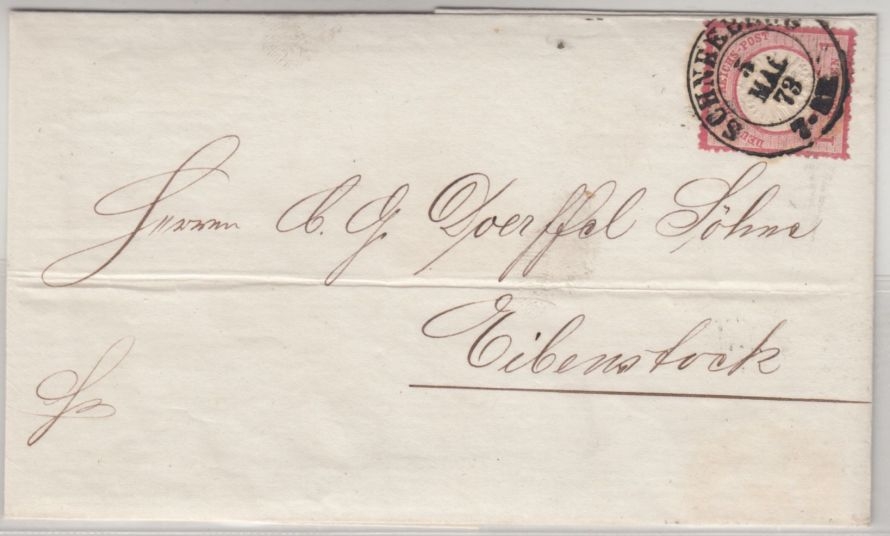 SCHNEEBERG
MAI
73
REICHS-POST
Herren C. G. Doerffel Söhne
Eibenstock